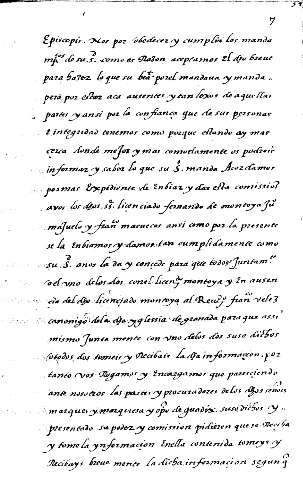 7
Episcopis. Nos por obedecer y cumplir los manda
mjos de su s. como es Razon aceptamos el dho breve
para hazer lo que su por el mandava y manda
pero por estar aca ausentes y tan lexos de aquellas
partes y ansi por la confiança que de sus personas
e integridad tenemos como porque estando ay mas
cerca donde mejor y mas comodamente os podreis
informar y saber lo que su S. manda Acordamos
por mas Expidiente de Enbiar y dar esta comission
a vos los dhos ss. licenciado fernando de montoya Ju
majuelo y fran maruecos ansi como por la presente
se la Enbiamos y damos tan cumplidamente como
su S. a nos la da y concede para que todos Juntamte
o el uno de los dos con el licendo montoya y En ausen
cia del dho licenciado montoya al fran velez
canonigo de la dha yglesia de granada para que assi
mismo Junta mente con uno de los dos suso dichos
o todos dos tomeis y Recibais la dha informacion, por
tanto vos Rogamos y Encargamos que pareciendo
ante nosotros las partes y procuradores de los dhos señores
marques y marquesa y opo de guadix suso dichos y
presentado su poder y comision pidieren que se Reciba
y tome la ynformacion En ella contenida tomeys y
Recibays breve mente la dicha informacion segun q